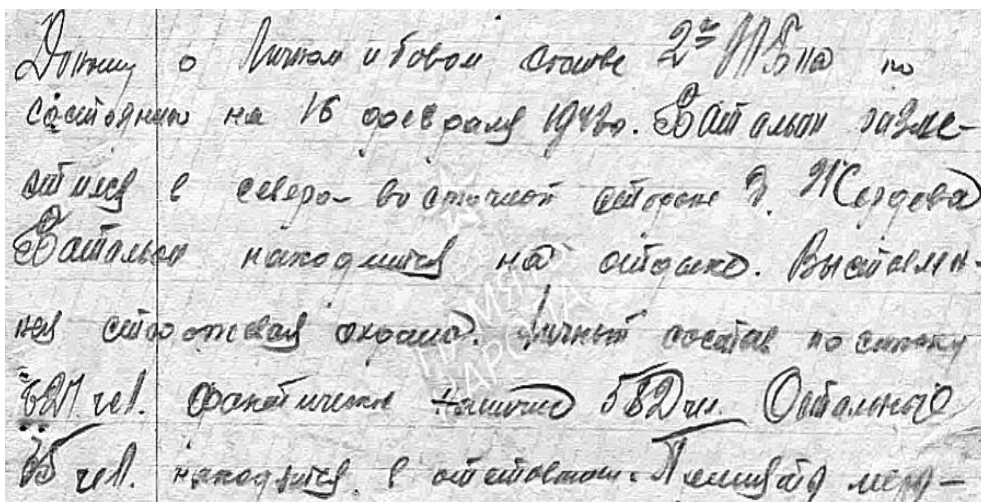 Доношу о личном и боевом составе 2го по
состоянию на 16 февраля 1943г. Батальон разме-
стился в северо-восточной стороне д.
Батальон находится на отдыхе. Выставлен-
ная сторожевая охрана. Личный состав по списку
627 чел. фактически наличие 582 чел. Остальные
чел. находятся в отставших.
ПАМЯТЬ НАРОДА